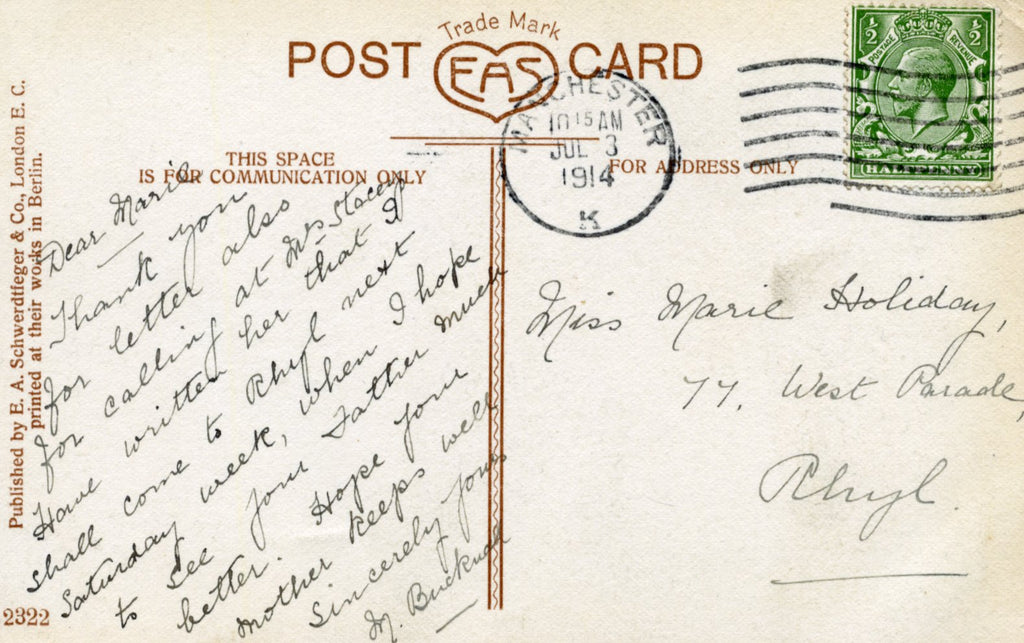 Trade Mark
POST CARD
EAS
THIS SPACE
IS FOR COMMUNICATION ONLY
FOR ADDRESS ONLY
MANCHESTER
10 15 AM
JUL 3
1914
K
½ ½
POSTAGE REVENUE
HALFPENNY
Published by E. A. Schwerdtfeger & Co., London E. C.
printed at their works in Berlin.
2322
Dear Marie
Thank you
for letter also
for calling at Mrs Stacey
Have written her that I
shall come to Rhyl next
Saturday week, when I hope
to see your Father much
better. Hope your
mother keeps well
Sincerely yours
M. Bucknall
Miss Marie Holiday,
77. West Parade,
Rhyl